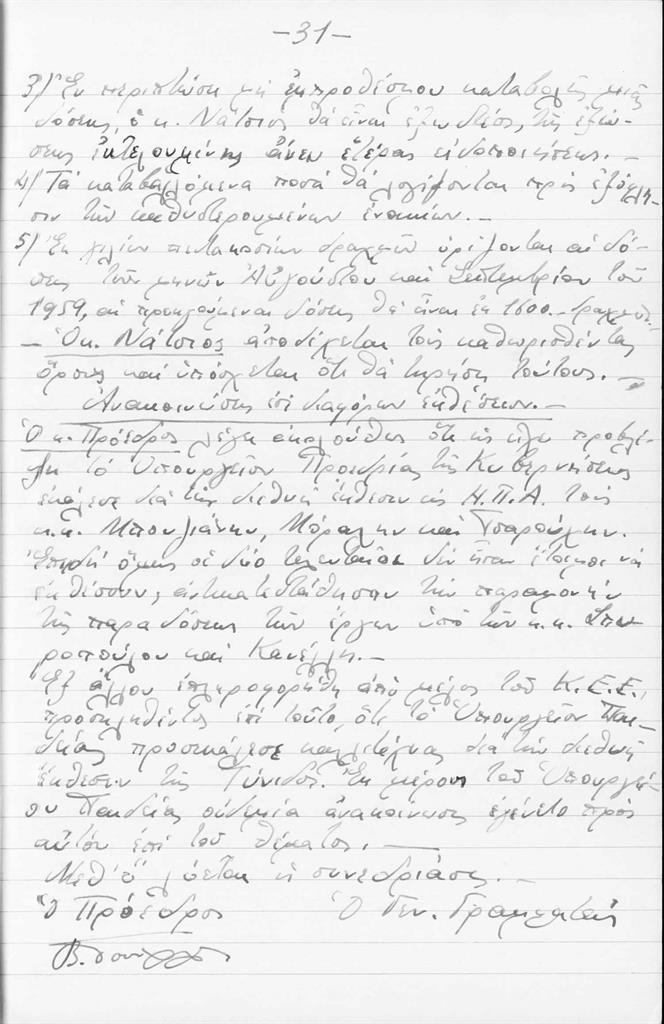 -31-
3) Ἐν περιπτώσει μὴ ἐμπροθέσμου καταβολῆς μιᾶς
δόσεως, ὁ κ. Νάτσιος θὰ εἶναι ἐξωστέος, τῆς ἐξώ-
σεως ἐκτελουμένης ἄνευ ἑτέρας εἰδοποιήσεως. -
4) Τὰ καταβαλλόμενα ποσὰ θὰ λογίζονται πρὸς ἐξόφλη-
σιν τῶν καθυστερουμένων ἐνοικίων. -
5) Ἐκ χιλίων πεντακοσίων δραχμῶν ὁρίζονται αἱ δό-
σεις τῶν μηνῶν Αὐγούστου καὶ Σεπτεμβρίου τοῦ
1959, αἱ προηγούμεναι δόσεις θὰ εἶναι ἐκ 1600.-
- Ὁ κ. Νάτσιος ἀποδέχεται τοὺς καθορισθέντας
ὅρους καὶ ὑπόσχεται ὅτι θὰ τηρήσῃ τούτους. -
Ἀνακοινώσεις ἐπὶ διαφόρων ἐκθέσεων. -
Ὁ κ. Πρόεδρος λέγει ἀκολούθως ὅτι
τὸ Ὑπουργεῖον Προεδρίας τῆς Κυβερνήσεως
ἐκάλεσε διὰ τὴν διεθνῆ ἔκθεσιν εἰς Η.Π.Α. τοὺς
κ.κ. Μπουζιάνην, Μόραλην καὶ Τσαρούχην.
Ἐπειδὴ ὅμως οἱ δύο τελευταῖοι δὲν ἦσαν ἕτοιμοι νὰ
ἐκθέσουν, ἀντικατεστάθησαν τὴν παραμονὴν
τῆς παραδόσεως τῶν ἔργων ὑπὸ τῶν κ.κ. Σπυ-
ροπούλου καὶ Κανέλλη. -
Ἐξ ἄλλου ἐπληροφορήθη ἀπὸ μέλος τοῦ Κ.Ε.Ε.,
προσκληθέντος ἐπὶ τοῦτο, ὅτι τὸ Ὑπουργεῖον Παι-
δείας προσεκάλεσε καλλιτέχνας διὰ τὴν διεθνῆ
ἔκθεσιν τῆς Τύνιδος. Ἐκ μέρους τοῦ Ὑπουργεί-
ου Παιδείας οὐδεμία ἀνακοίνωσις ἐγένετο πρὸς
αὐτὸν ἐπὶ τοῦ θέματος. -
Μεθ' ὃ λύεται ἡ συνεδρίασις. -
Ὁ Πρόεδρος Ὁ Γεν. Γραμματεὺς